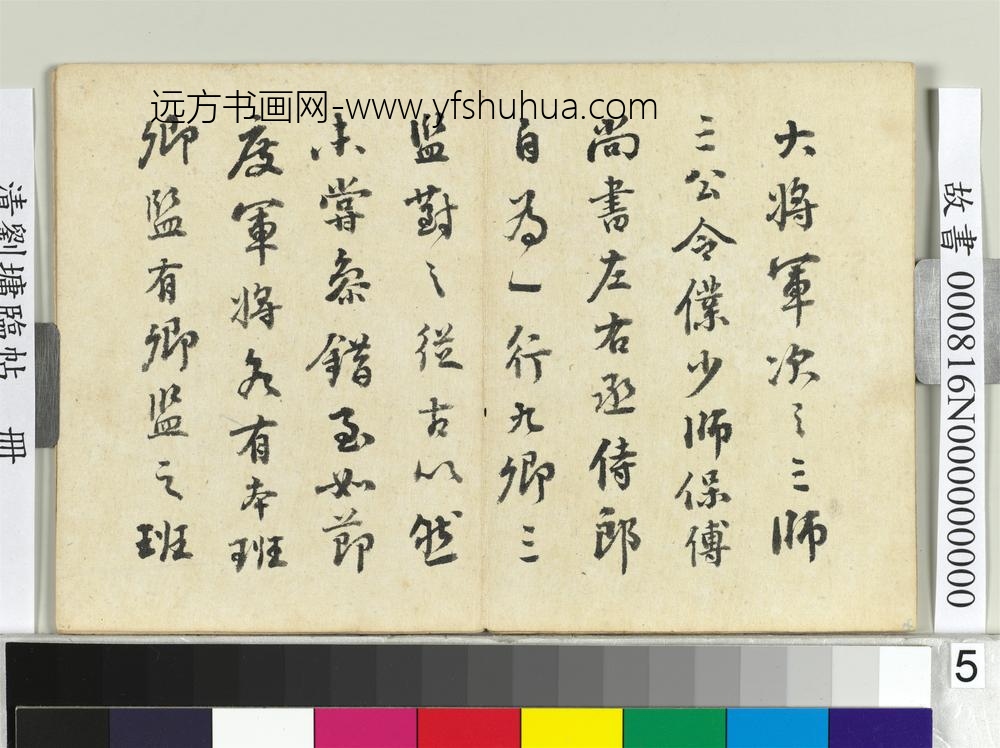 远方书画网-www.yfshuhua.com
大將軍次之三師
三公令僕少師保傅
尚書左右丞侍郎
自為一行九卿三
監對之從古以然
未嘗參錯至如節
度軍將各有本班
卿監有卿監之班
故書 000816N000000000
清劉墉臨帖 冊
5